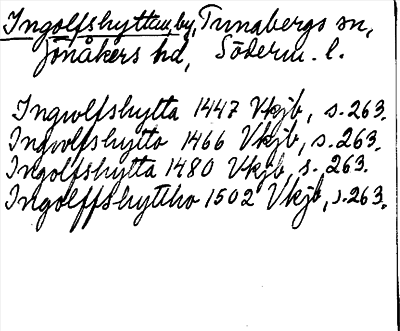 Ingolfshyttan, by, Tunabergs sn,
Jönåkers hd, Söderm. l.
Ingwolfshytta 1447 Vkjb, s. 263.
Ingwlfshytto 1466 Vkjb, s. 263.
Ingolfshytta 1480 Vkjb, s. 263.
Ingolffshyttho 1502 Vkjb, s. 263.